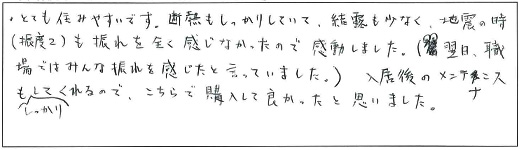 ・とても住みやすいです。断熱もしっかりしていて、結露も少なく、地震の時
(振度2)も振れを全く感じなかったので感動しました。(翌日、職
場ではみんな振れを感じたと言っていました。) 入居後のメンテナンス
もしっかりしてくれるので、こちらで購入して良かったと思いました。